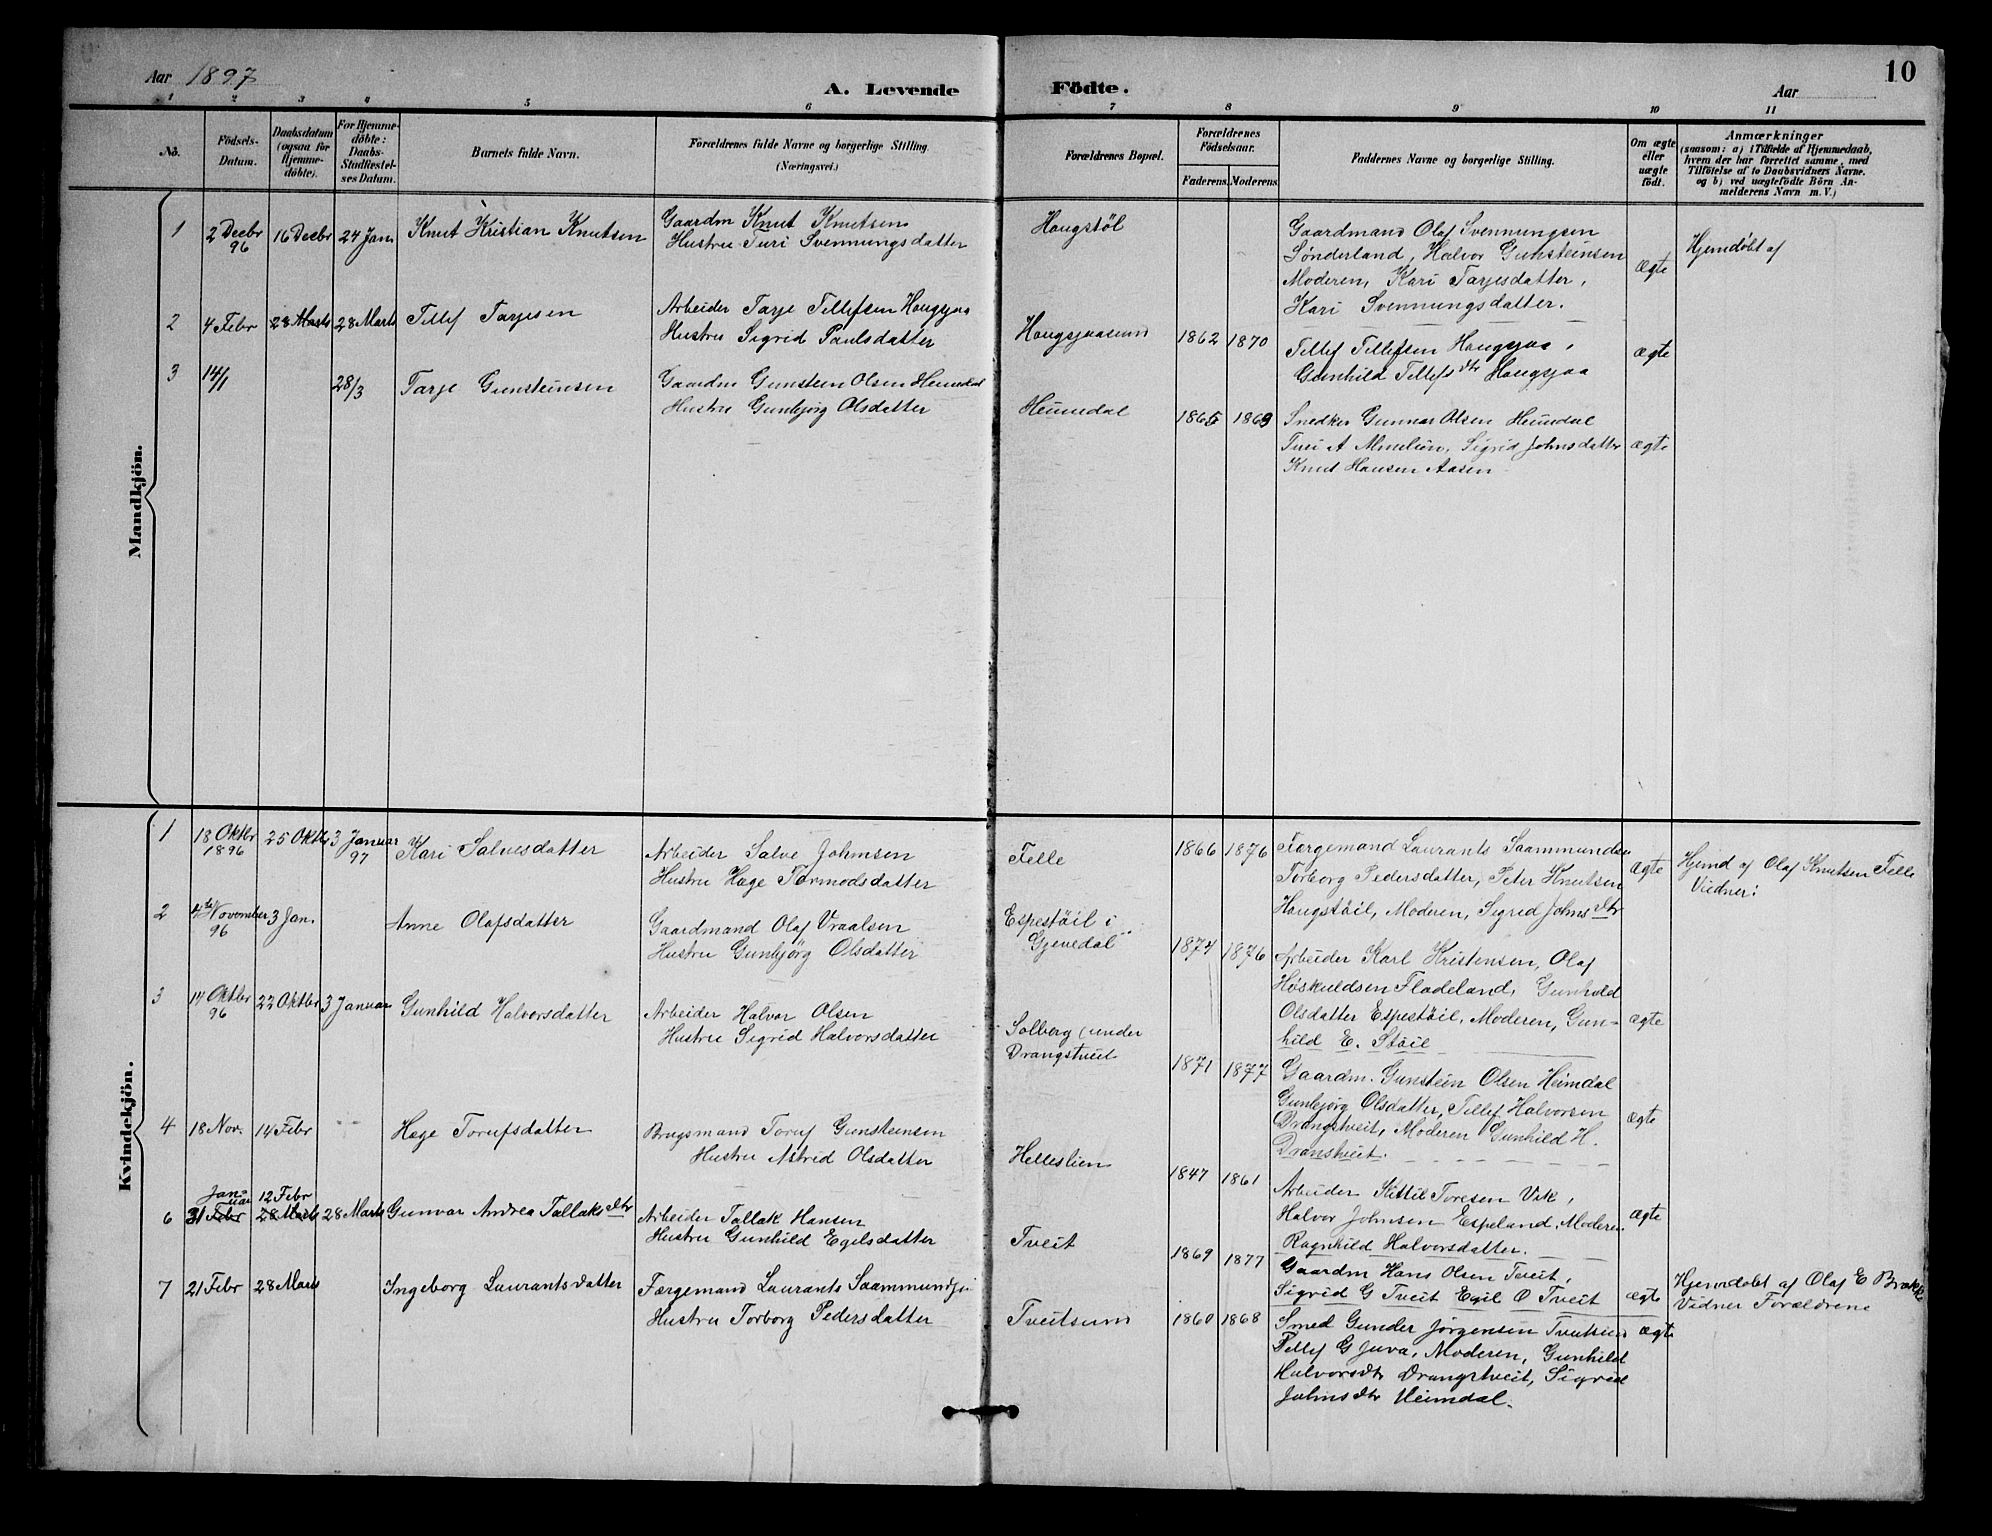 Aar 1897
A. Levende Födte.
Aar
10
1 2 3 4 5 6 7 8 9 10 11
No.
Födsels-
Datum.
Daabsdatum
(ogsaa for
Hjemme-
döbte).
For Hjemme-
döbte:
Daabs-
Stadfæstel-
ses Datum.
Barnets fulde Navn.
Forældrenes fulde Navne og borgerlige Stilling.
(Næringsvei.)
Forældrenes Bopæl.
Forældrenes
Födselsaar.
Faderens. Moderens.
Faddernes Navne og borgerlige Stilling.
Om ægte
eller
uægte
födt.
Anmærkninger
(saasom: a) i Tilfælde af Hjemmedaab,
hvem der har forrettet samme, med
Tilföielse af to Daabsvidners Navne.
og b) ved uægtefödte Börn An-
melderens Navn m. V.)
Mandkjön.
1
2 Decbr
96
16 Decbr
24 Jan
Knut Kristian Knutsen
Gaardm Knut Knutsen
Hustru Turi Svennungsdatter
Haugstöl
Gaardmand Olaf Svennungsen
Sönderland, Halvor Gunsteinsen
Moderen, Kari Tarjesdatter,
Kari Svennungsdatter.
Ægte
Hjemdöbt af
2
4 Febr
28 Marts
28 Marts
Tellef Tarjesen
Arbeider Tarje Tellefsen Haugsjaa
Hustru Sigrid Paulsdatter
Haugsjaasund
1862 1870
Tellef Tellefsen Haugsjaa,
Gunhild Tellefsdtr Haugsjaa
ægte
3
14/1
28/3
Tarje Gunsteinsen
Gaardm Gunstein Olsen Heimdal
Hustru Gunbjörg Olsdatter
Heimdal
1865 1869
Snedker Gunnar Olsen Heimdal
Turi A Mindlien, Sigrid Johnsdatter
Knut Hansen Aasen
ægte
Kvindekjön.
1
18 Oktbr
1896
25 Oktbr
3 Januar
97
Kari Salvesdatter
Arbeider Salve Johnsen
Hustru Hæge Tormodsdatter
Felle
1866 1876
Færgemand Laurants Saammundsen
Torborg Pedersdatter, Peter Knutsen
Haugstöil, Moderen, Sigrid Johnsdtr
Ægte
Hjemd af Olaf Knutsen Felle
Vidner:
2
4de November
96
3 Jan.
Anne Olafsdatter
Gaardmand Olaf Vraalsen
Hustru Gunbjörg Olsdatter
Espestöil i
Gjevedal
1874 1876
Arbeider Karl Kristensen, Olaf
Höskuldsen Fladeland, Gunhild
Olsdatter Espestöil, Moderen, Gun-
hild E. Stöil
ægte
3
14 Oktbr
96
22 Oktbr
3 Januar
Gunhild Halvorsdatter
Arbeider Halvor Olsen
Hustru Sigrid Halvorsdatter
Solberg (under
Drangstveit
1871 1877
Gaardm. Gunstein Olsen Heimdal
Gunbjörg Olsdatter, Tellef Halvorsen
Drangstveit, Moderen Gunhild H.
Dranstveit.
ægte
4
18 Nov.
14 Febr
Hæge Torufsdatter
Brugsmand Toruf Gunsteinsen
Hustru Astrid Olsdatter
Helleslien
1847 1861
Arbeider Kittil Toresen Vik,
Halvor Johnsen Espeland, Moderen
Ragnhild Halvorsdatter.
ægte
6
Jan-
uar
31 Febr
12 Febr
28 Marts
28 Marts
Gunvor Andrea Tallaksdtr
Arbeider Tallak Hansen
Hustru Gunhild Egelsdatter
Tveit
1869 1877
Gaardm Hans Olsen Tveit,
Sigrid G Tveit Egil O Tveit
ægte
Hjemdöbt af Olaf E Brække
Vidner Forældrene
7
21 Febr
28 Marts
Ingeborg Laurantsdatter
Færgemand Laurants Saammundsen
Hustru Torborg Pedersdatter
Tveitsund
1860 1868
Smed Gunder Jörgensen Tveitsund
Tellef G Juva, Moderen, Gunhild
Halvorsdtr Drangstveit, Sigrid
Johnsdtr Heimdal.
ægte